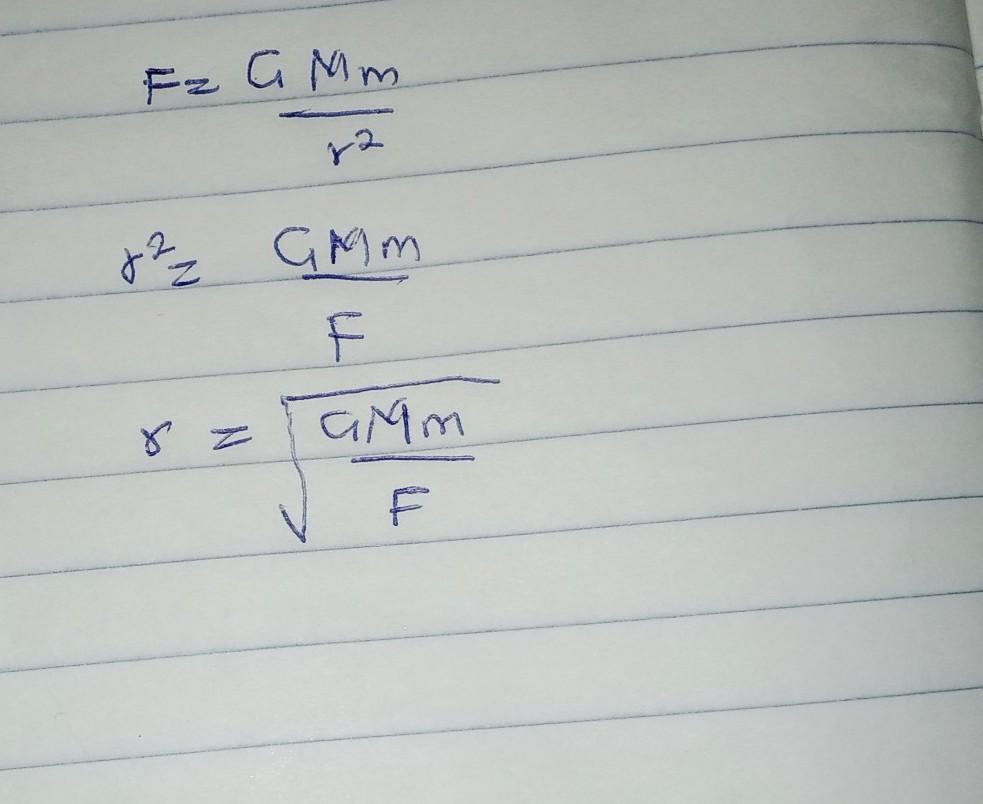 F = G Mm / r²
r² = GMm / F
r = √(GMm / F)